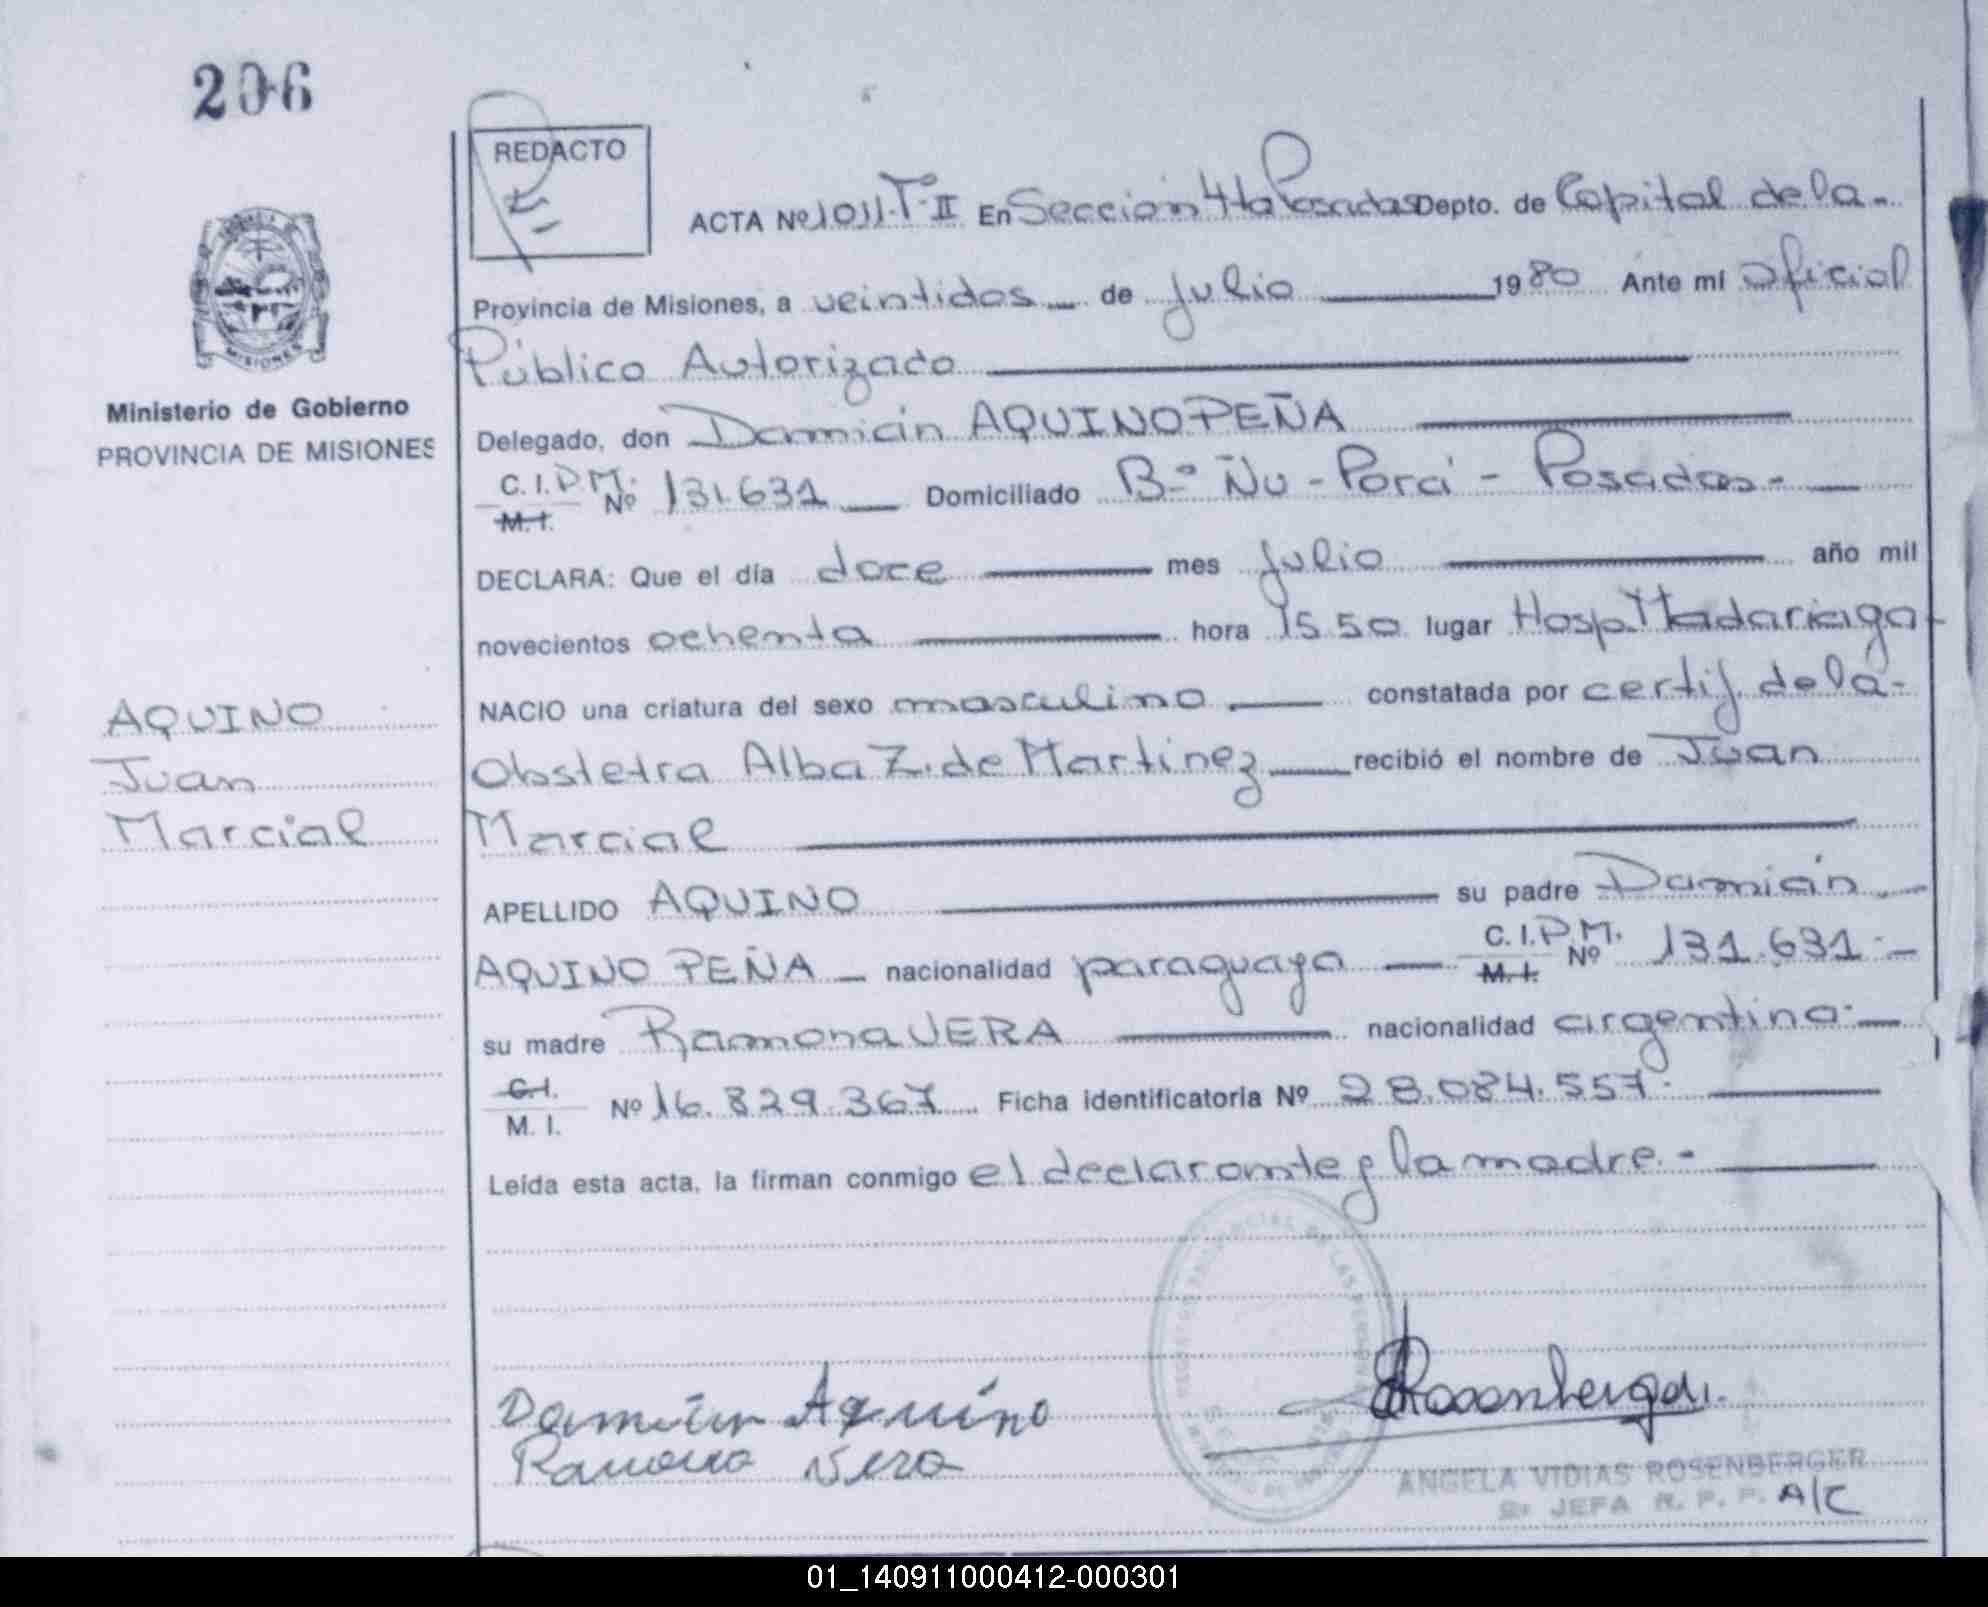 206
REDACTO
ACTA Nº 1011.Tº II En Sección 4ta Posadas Depto. de Capital de la-
Provincia de Misiones, a veintidos de Julio 1980 Ante mí Oficial
Público Autorizado
MISIONES
Ministerio de Gobierno
PROVINCIA DE MISIONES
Delegado, don Damián AQUINO PEÑA
C.I.P.M. M.I. Nº 131.631 Domiciliado Bº Ñu-Porá - Posadas-
DECLARA: Que el día doce mes Julio año mil
novecientos ochenta hora 15.50 lugar Hosp. Madariaga
AQUINO
Juan
Marcial
NACIO una criatura del sexo masculino constatada por certif. de la-
Obstetra Alba Z. de Martinez recibió el nombre de Juan
Marcial
APELLIDO AQUINO su padre Damián
AQUINO PEÑA nacionalidad paraguaya C.I.P.M. M.I. Nº 131.631.-
su madre Ramona VERA nacionalidad argentina.-
C.I. M.I. Nº 16.829.367 Ficha identificatoria Nº 28.084.557.
Leída esta acta, la firman conmigo el declarante y la madre.-
Damián Aquino
Ramona Vera
Rosenberger
ANGELA VIDIAS ROSENBERGER
JEFA R. P. P. A/C
01_140911000412-000301